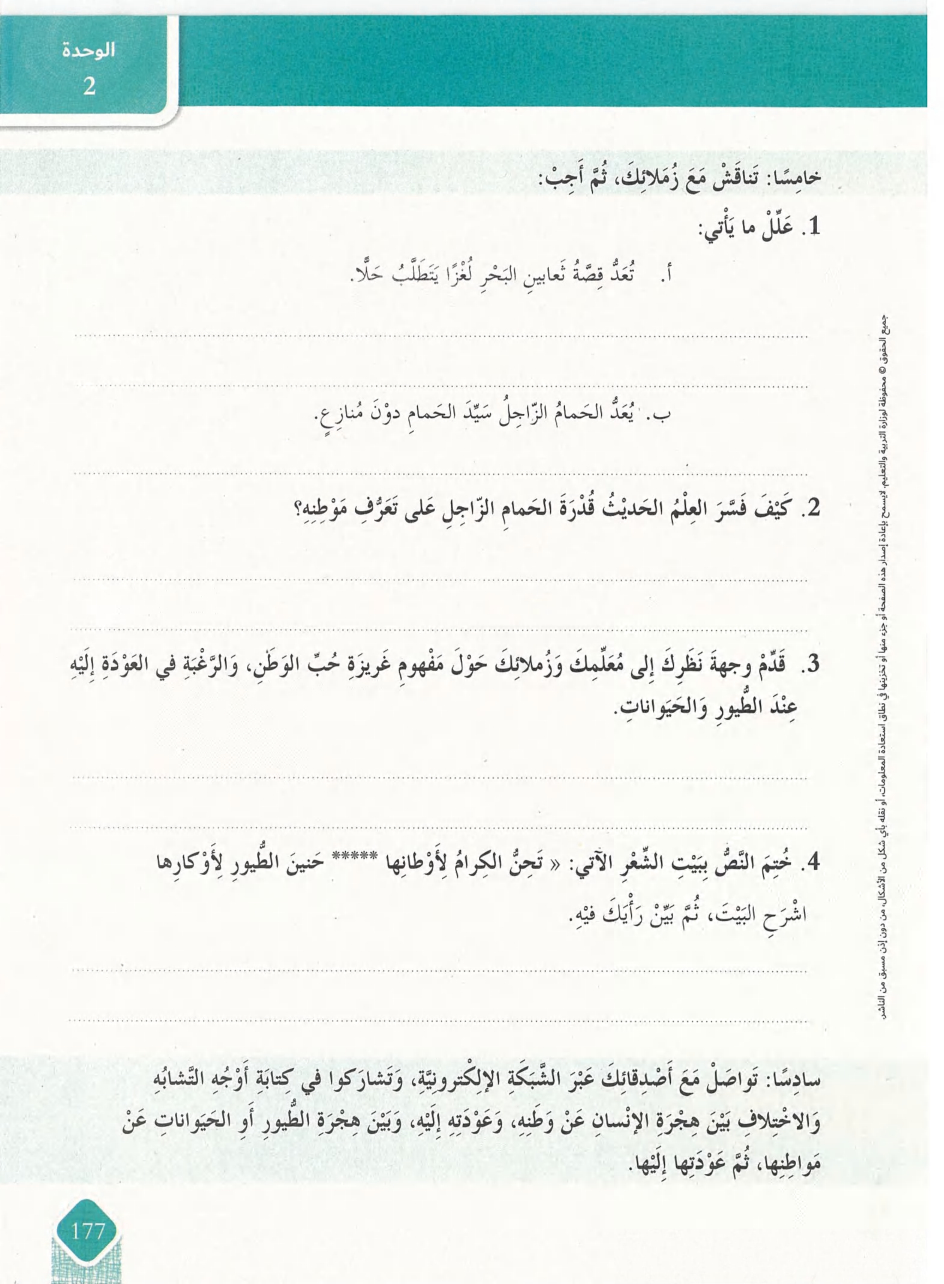 الوحدة
2
خامِسًا: تَناقَشْ مَعَ زُمَلائِكَ، ثُمَّ أَجِبْ:
1. عَلِّلْ ما يَأْتي:
أ. تُعَدُّ قِصَّةُ ثَعابينِ البَحْرِ لُغْزًا يَتَطَلَّبُ حَلًّا.
ب. يُعَدُّ الحَمامُ الزّاجِلُ سَيِّدَ الحَمامِ دوْنَ مُنازِعٍ.
2. كَيْفَ فَسَّرَ العِلْمُ الحَديْثُ قُدْرَةَ الحَمامِ الزّاجِلِ عَلى تَعَرُّفِ مَوْطِنِهِ؟
3. قَدِّمْ وجهةَ نَظَرِكَ إلى مُعَلِّمِكَ وَزُملائِكَ حَوْلَ مَفْهومِ غَريزَةِ حُبِّ الوَطَنِ، وَالرَّغْبَةِ في العَوْدَةِ إلَيْهِ
عِنْدَ الطُّيورِ وَالحَيَواناتِ.
4. خُتِمَ النَّصُّ بِبَيْتِ الشِّعْرِ الآتي: « تَحِنُّ الكِرامُ لِأَوْطانِها ***** حَنينَ الطُّيورِ لِأَوْكارِها
اشْرَحِ البَيْتَ، ثُمَّ بَيِّنْ رَأْيَكَ فيْهِ.
سادِسًا: تَواصَلْ مَعَ أَصْدقائِكَ عَبْرَ الشَّبَكَةِ الإلِكْترونيَّةِ، وَتَشارَكوا في كِتابَةِ أوْجُهِ التَّشابُهِ
وَالاخْتِلافِ بَيْنَ هِجْرَةِ الإنْسانِ عَنْ وَطَنِهِ، وَعَوْدَتِهِ إلَيْهِ، وَبَيْنَ هِجْرَةِ الطُيورِ أَوِ الحَيَواناتِ عَنْ
مَواطِنِها، ثُمَّ عَوْدَتِها إلَيْها.
177
جميع الحقوق © محفوظة لوزارة التربية والتعليم. لايسمح بإعادة إصدار هذه الصفحة أو جزء منها أو تخزينها في نطاق استعادة المعلومات، أو نقله بأي شكل من الأشكال، من دون إذن مسبق من الناشر.